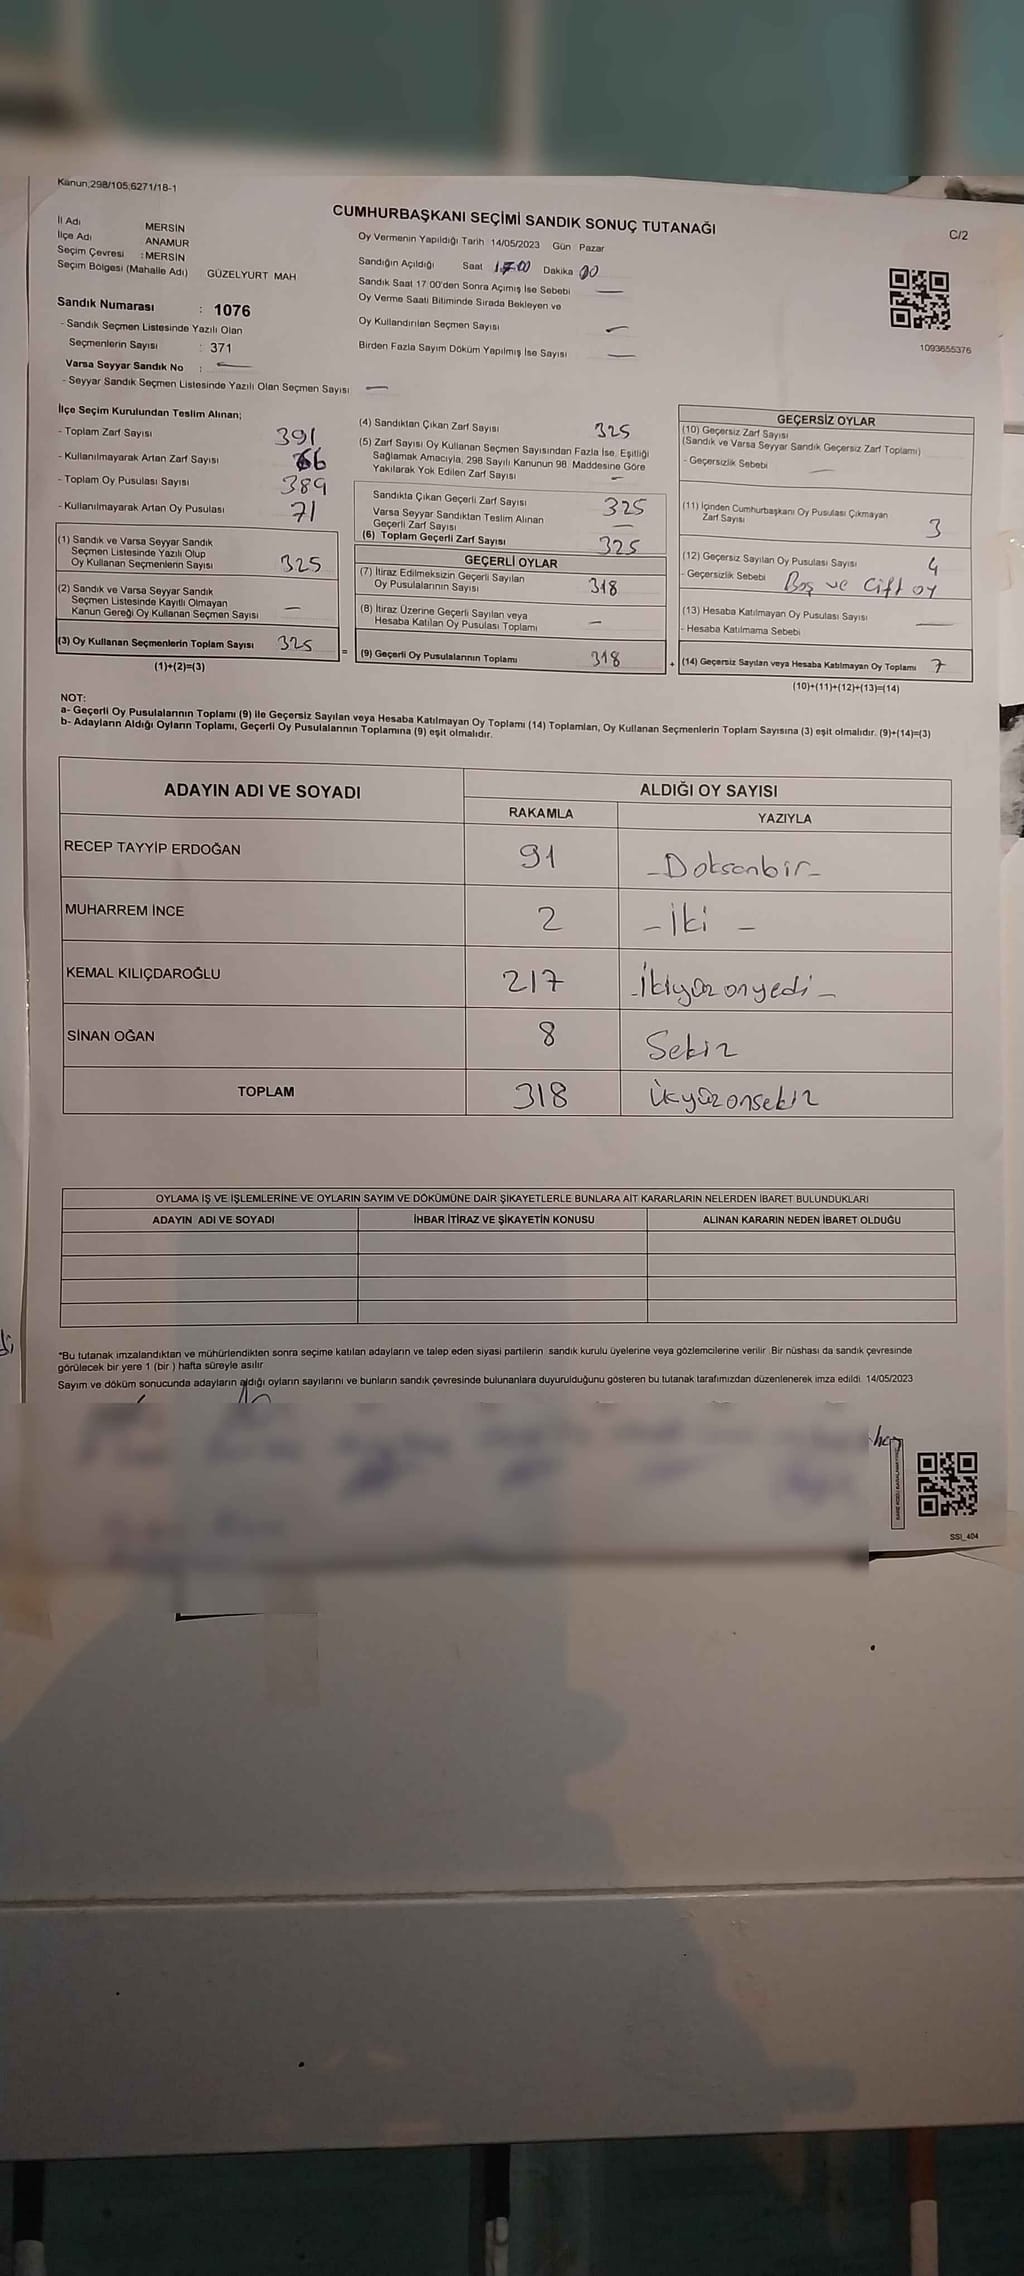 Kanun;298/105;6271/18-1
CUMHURBAŞKANI SEÇİMİ SANDIK SONUÇ TUTANAĞI
C/2
İl Adı MERSİN
İlçe Adı ANAMUR
Seçim Çevresi : MERSİN
Seçim Bölgesi (Mahalle Adı) GÜZELYURT MAH
Sandık Numarası : 1076
- Sandık Seçmen Listesinde Yazılı Olan
Seçmenlerin Sayısı : 371
Varsa Seyyar Sandık No : —
- Seyyar Sandık Seçmen Listesinde Yazılı Olan Seçmen Sayısı —
Oy Vermenin Yapıldığı Tarih 14/05/2023 Gün Pazar
Sandığın Açıldığı Saat 17:00 Dakika 00
Sandık Saat 17:00'den Sonra Açımış İse Sebebi —
Oy Verme Saati Bitiminde Sırada Bekleyen ve
Oy Kullandırılan Seçmen Sayısı —
Birden Fazla Sayım Döküm Yapılmış İse Sayısı —
1093655376
İlçe Seçim Kurulundan Teslim Alınan;
- Toplam Zarf Sayısı 391
- Kullanılmayarak Artan Zarf Sayısı 66
- Toplam Oy Pusulası Sayısı 389
- Kullanılmayarak Artan Oy Pusulası 71
(1) Sandık ve Varsa Seyyar Sandık
Seçmen Listesinde Yazılı Olup
Oy Kullanan Seçmenlerin Sayısı 325
(2) Sandık ve Varsa Seyyar Sandık
Seçmen Listesinde Kayıtlı Olmayan
Kanun Gereği Oy Kullanan Seçmen Sayısı —
(3) Oy Kullanan Seçmenlerin Toplam Sayısı 325
(1)+(2)=(3)
=
(4) Sandıktan Çıkan Zarf Sayısı 325
(5) Zarf Sayısı Oy Kullanan Seçmen Sayısından Fazla İse, Eşitliği
Sağlamak Amacıyla, 298 Sayılı Kanunun 98. Maddesine Göre
Yakılarak Yok Edilen Zarf Sayısı —
Sandıkta Çıkan Geçerli Zarf Sayısı 325
Varsa Seyyar Sandıktan Teslim Alınan
Geçerli Zarf Sayısı —
(6) Toplam Geçerli Zarf Sayısı 325
GEÇERLİ OYLAR
(7) İtiraz Edilmeksizin Geçerli Sayılan
Oy Pusulalarının Sayısı 318
(8) İtiraz Üzerine Geçerli Sayılan veya
Hesaba Katılan Oy Pusulası Toplamı —
(9) Geçerli Oy Pusulalarının Toplamı 318
+
GEÇERSİZ OYLAR
(10) Geçersiz Zarf Sayısı
(Sandık ve Varsa Seyyar Sandık Geçersiz Zarf Toplamı)
- Geçersizlik Sebebi —
(11) İçinden Cumhurbaşkanı Oy Pusulası Çıkmayan
Zarf Sayısı 3
(12) Geçersiz Sayılan Oy Pusulası Sayısı 4
- Geçersizlik Sebebi Boş ve Çift oy
(13) Hesaba Katılmayan Oy Pusulası Sayısı —
- Hesaba Katılmama Sebebi
(14) Geçersiz Sayılan veya Hesaba Katılmayan Oy Toplamı 7
(10)+(11)+(12)+(13)=(14)
NOT:
a- Geçerli Oy Pusulalarının Toplamı (9) ile Geçersiz Sayılan veya Hesaba Katılmayan Oy Toplamı (14) Toplamları, Oy Kullanan Seçmenlerin Toplam Sayısına (3) eşit olmalıdır. (9)+(14)=(3)
b- Adayların Aldığı Oyların Toplamı, Geçerli Oy Pusulalarının Toplamına (9) eşit olmalıdır.
ADAYIN ADI VE SOYADI ALDIĞI OY SAYISI
RAKAMLA YAZIYLA
RECEP TAYYİP ERDOĞAN 91 - Doksanbir -
MUHARREM İNCE 2 - İki -
KEMAL KILIÇDAROĞLU 217 - İkiyüz onyedi -
SİNAN OĞAN 8 Sekiz
TOPLAM 318 Üçyüzonsekiz
OYLAMA İŞ VE İŞLEMLERİNE VE OYLARIN SAYIM VE DÖKÜMÜNE DAİR ŞİKAYETLERLE BUNLARA AİT KARARLARIN NELERDEN İBARET BULUNDUKLARI
ADAYIN ADI VE SOYADI İHBAR İTİRAZ VE ŞİKAYETİN KONUSU ALINAN KARARIN NEDEN İBARET OLDUĞU
*Bu tutanak imzalandıktan ve mühürlendikten sonra seçime katılan adayların ve talep eden siyasi partilerin sandık kurulu üyelerine veya gözlemcilerine verilir. Bir nüshası da sandık çevresinde
görülecek bir yere 1 (bir) hafta süreyle asılır
Sayım ve döküm sonucunda adayların aldığı oyların sayılarını ve bunların sandık çevresinde bulunanlara duyurulduğunu gösteren bu tutanak tarafımızdan düzenlenerek imza edildi. 14/05/2023
SSI_404